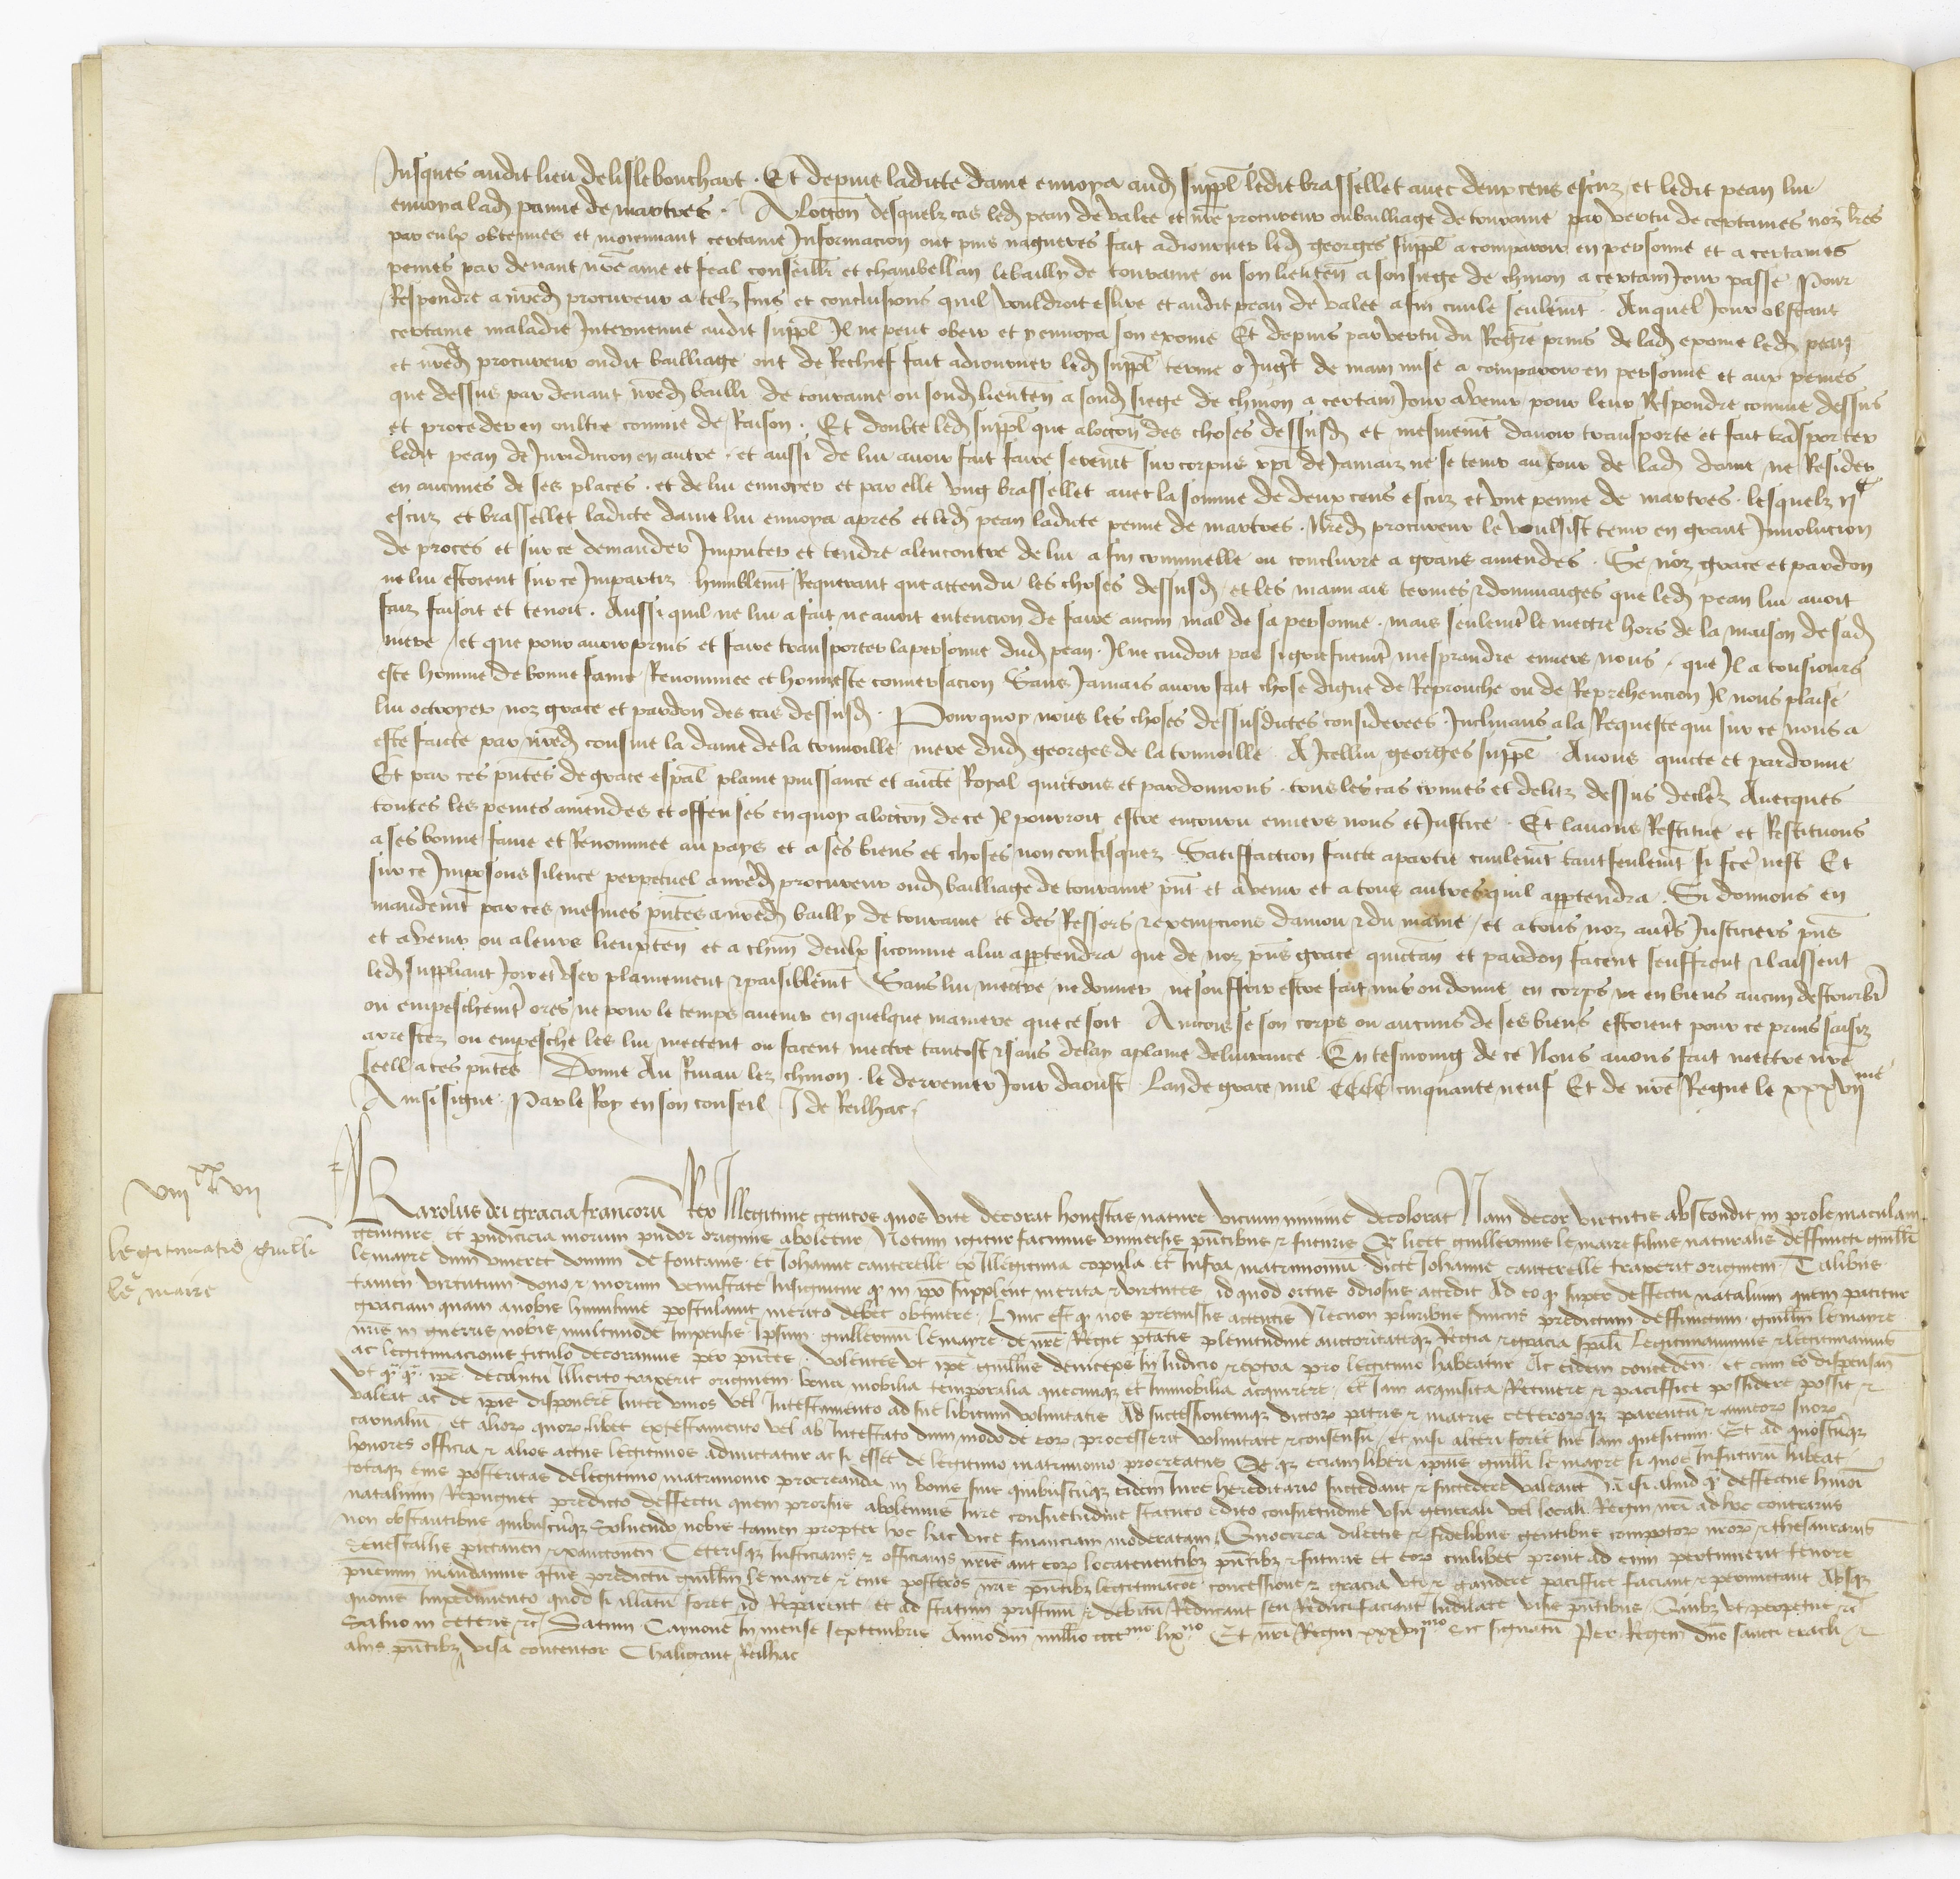 Jusques audit lieu de lislebouchart . Et depuis ladicte dame envoya aud suppl ledit brassellet avec deux cens escuz et ledit pean lui
envoya lad panne de martres . A loccon desquelz cas led pean de valee et nre procureur ou bailliage de touraine par vertu de certaines noz lres
par eulx obtenues et moiennant certaine Informacion ont puis nagueres fait adiourner led georges suppl a comparoir en personne et a certaines
peines par devant nre ame et feal conseillr et chambellan le bailly de touraine ou son lieuten a son siege de chinon a certain Jour passe Pour
Respondre a nred procureur a telz fins et conclusions quil vouldroit eslire et audit pean de valee a fin civile seulemt . Auquel Jour obstant
certaine maladie Intervenue audit suppl Il ne peut obeir et y envoya son exoine Et depuis par vertu du Regre prins de lad exoine led pean
et nred procureur oudit bailliage ont de Rechief fait adiourner led suppl terme o Jugt de main mise a comparoir en personne et aux peines
que dessus par devant nred bailli de touraine ou sond lieuten a sond siege de chinon a certain Jour avenir pour leur Respondre comme dessus
et proceder en oultre comme de Raison . Et doubte led suppl que a loccon des choses dessusd et mesmemt davoir transporte et fait trasporter
ledit pean de Juridicion en autre . et aussi de lui avoir fait faire seremt sur corpus xpi de Jamaiz ne se tenir autour de lad dame ne Resider
en aucunes de ses places . et de lui envoyer et par elle ung brassellet avec la somme de deux cens escuz et une penne de martres . lesquelz IIc
escuz et brassellet ladicte dame lui envoya apres et led pean ladicte penne de martres . Nred procureur le voulsist tenir en grant Involucion
de proces et sur ce demander Imputer et tendre alencontre de lui a fin criminelle ou conclurre a grans amendes . Se noz grace et pardon
ne lui estoient sur ce Impartiz humblemt Requerant que attendu les choses dessusd et les mauvais termes & dommaiges que led pean lui avoit
faiz faisoit et tenoit . Aussi quil ne lui a fait ne avoit entencion de faire aucun mal de sa personne . mais seulemt le mectre hors de la maison de sad
mere / et que pour avoir prins et faire transporter la personne dud pean . Il ne cuidoit pas si griefvemt mesprandre envers nous . que Il a tousiours
este homme de bonne fame Renommee et honneste conversacion Sans Jamais avoir fait chose digne de Reprouche ou de Reprehencion Il nous plaise
lui octroyer noz grace et pardon des cas dessusd . Pourquoy nous les choses dessusdictes considerees . Inclinans a la Requeste qui sur ce nous a
este faicte par nred cousine la dame de la trimoille mere dud georges de la trimoille A Icellui georges suppl Avons quicte et pardonne
Et par ces pntes de grace espal plaine puissance et aucte Royal quictons et pardonnons . tous les cas crimes et delitz dessus declez Avecques
toutes les peines amendes et offenses en quoy a loccon de ce Il pourroit estre encouru envers nous et Justice . Et lavons Restitue et Restituons
a ses bonne fame et Renommee au pays et a ses biens et choses non confisquez . Satiffaction faicte a partie civilemt tant seulemt si fce nest Et
sur ce Imposons silence perpetuel a nred procureur oud bailliage de touraine pnt et avenir et a tous autres quil appartendra . Si donnons en
mandemt par ces mesmes pntes a nred bailly de touraine et des Ressors & exempcions danjou & du maine / et a tous noz autrs Justiciers pns
et avenir ou a leurs lieuxten et a chun deulx si comme a lui appartendra que de noz pns grace quictan et pardon facent seuffrent & laissent
led suppliant Joir et user plainement & paisiblemt Sans lui mectre ne donner ne souffrir estre fait mis ou donne en corps ne en biens aucun destourbr
ou empeschemt ores ne pour le temps avenir en quelque maniere que ce soit Aincois se son corps ou aucuns de ses biens estoient pour ce prins saisiz
arrestez ou empesche les lui mectent ou facent mectre tantost & sans delay a plaine delivrance . En tesmoing de ce Nous avons fait mettre nre
seel a ces pntes Donne Au Rivau lez chinon . le derrenier Jour daoust Lan de grace mil cccc cinquante neuf Et de nre Regne le xxxviime
Ainsi signe . Par le Roy en son conseil J de Reilhac .
viiixxvii
legitimatio guilli
le maire
Karolus dei gracia francoru Rex Illegitime genitos quos vite decorat honestas nature vicium minime decolorat Nam decor virtutis abscondit in prole maculam
geniture et pudicicia morum pudor originis aboletur Notum igitur facimus universis pntibus & futuris Q licet guillermus le maire filius naturalis deffuncti guilli
le maire dum viveret domini de fontains et Johanne canterelle ex Illegitima copula et Infra matrimoniu dicte Johanne canterelle traxerit originem Talibus
tamen virtutum dono & morum venustate Insignitur q in ipo supplent merita & virtutes id quod ortus odiosus accedit Ad eo q super deffectu natalium quem patitur
graciam quam a nobis humilime postulavit merito debet obtinere . Hinc est q nos premissis attentis Necnon pluribus serviciis predictum deffunctum guillm le mayre
nris in guerris nobis multimode Impensis Ipsum guillermu le mayre de nre Regie ptatis plenitudine auctoritateq Regia & gracia spali Legitimavimus & legitimamus
ac legitimacionis titulo decoramus per pntes . volentes ut ipe guillms deinceps In Judicio & extra pro legitimo habeatur Ac eidem conceden et cum eo dispensan
ut q q ipe de coitu Illicito traxerit originem bona mobilia temporalia quecunq et Immobilia acquirere et Jam acquisita Retinere & paciffice possidere possit &
valeat ac de ipis disponere Inter vivos vel Intestamento ad sue libitum voluntatis Ad successionemq dictor patris & matris ceterorq parentu & amicor suor
carnaliu et alior quorlibet ex testamento vel ab Intestato dum modo de eor processerit voluntate & consensu / et nisi alteri foret Jus Jam quesitum . Et ad quoscuq
honores officia & alios actus legitimos admictatur ac si esset de legitimo matrimonio procreatus Et q eciam liberi ipius guilli le mayre si quos Infuturu habeat
totaq eius posteritas de legitimo matrimonio procreanda in bonis suis quibuscuq eidem Jure hereditario succedant & succedere valeant nisi aliud q deffectus hmoi
natalium Repugnet predicto deffectu quem prorsus abolemus Jure consuetudine statuto edito consuetudine usu generali vel locali Regni nri ad hoc contrariis
non obstantibus quibuscuq Solvendo nobis tamen propter hoc hac vice financiam moderatam Quocirca dilectis & fidelibus gentibus compotor nror & thesaurariis
Senescallis pictaven & xanctonen Ceterisq Justiciariis & officiariis nris aut eor locatenentibz pntibz & futuris et eor cuilibet prout ad eum pertinuerit tenore
pncium mandamus qtus predictu guillm le mayre & eius posteros nris pntibz legitimacoe concessione & gracia uti & gaudere paciffice faciant & permictant Absq
quovis Impedimento quod si illatu foret id Reparent et ad statum pristinu & debitu Reducant seu Reduci faciant Indilate visis pntibus Quibz ut perpetue &c
Salvo in ceteris &c Datum Caynone In mense septembris Anno dni millio ccccmo lixno Et nri Regni xxxviimo Sic signatu Per Regem dno sancti eracli &
aliis pntibz visa contentor Chaligaut Reilhac